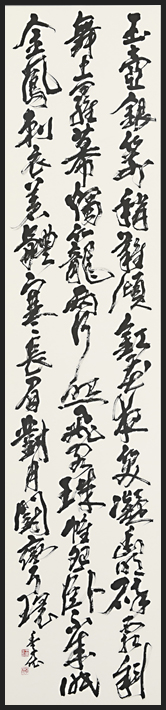 玉壺銀箭稍難傾釭花夜笑凝幽明碎霜斜
舞上羅幕燭龍兩行照飛閣珠帷怨臥不成眠
金鳳刺衣著體寒長眉對月鬥彎環